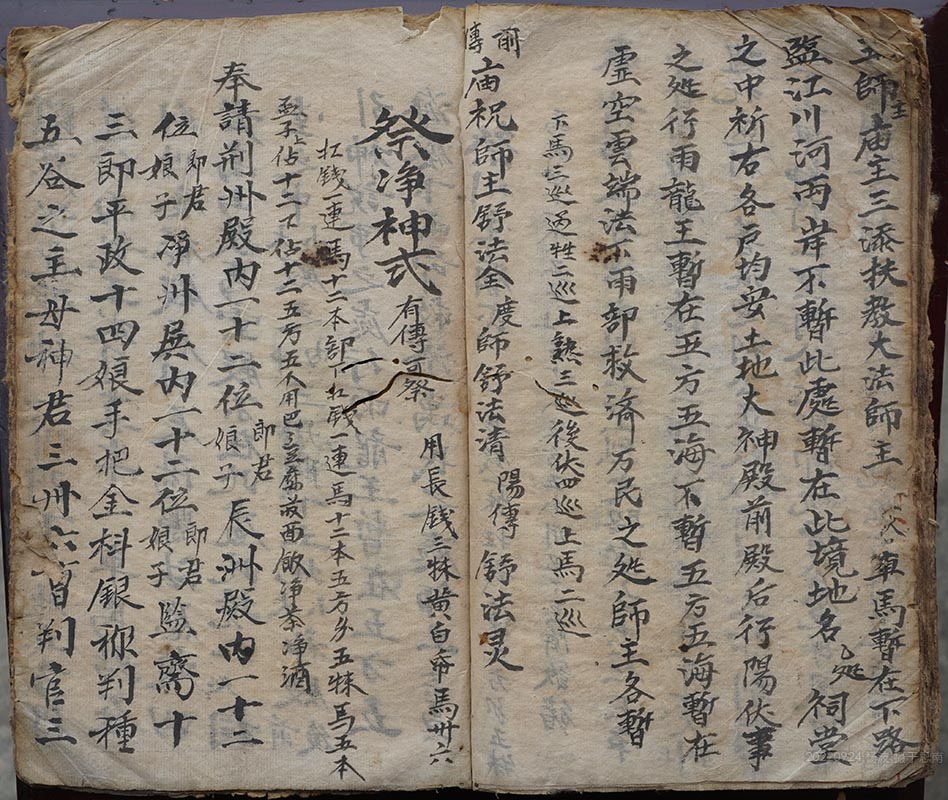 主師主庙主三添扶教大法師主 軍馬暫在下路
臨江川河两岸不暫此處暫在此境地名乙処祠堂
之中祈右各戶均安土地大神殿前殿后行陽伏事
之処行雨龍王暫在五方五海不暫五方五海暫在
虚空雲端法下雨部救濟万民之処師主各暫
下馬三巡 牲二巡上熟三巡後伏四巡上馬二巡
前傳庙祝師主舒法全度師舒法清陽傳舒法灵
祭净神式有傳可祭 用長錢三牀黄白
馬卅六
扛錢一連馬十二本部下扛錢一連馬十二本五方多五牀馬五本
孟子上佔十二下佔十二五方五 用巴 酒飯净茶净酒
奉請荆州殿内一十二位郎君娘子辰洲殿内一十二
位郎君娘子净州殿内一十二位郎君娘子監齋十
三郎平政十四娘手把金科銀称判種
五谷之主母神君三州六 判官三
2021-09-24 拍于思南